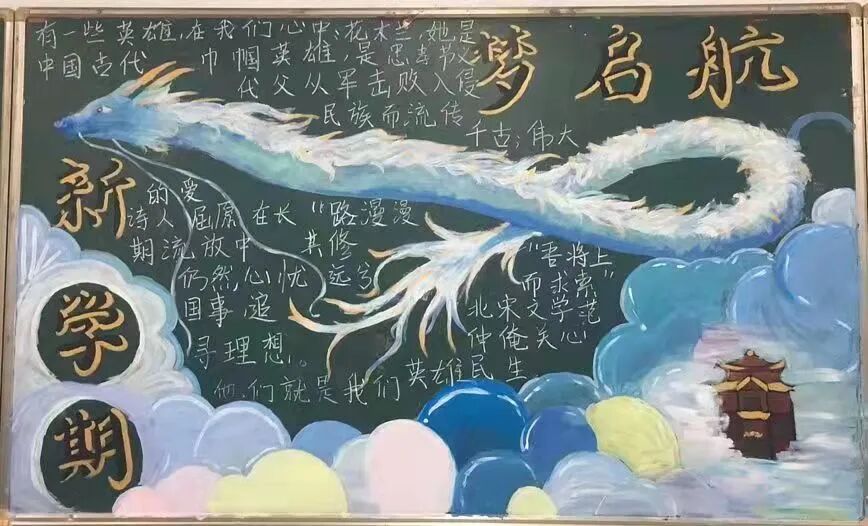 有一些英雄,在我们心中,花木兰,她是
中国古代 巾帼英雄,是忠孝节义
代父从军击败入侵
民族而流传
千古;伟大
梦启航
新
学
期
的爱
诗人屈原在长 "路漫漫
期流放中 其修
仍然,心忧 远兮
国事,追
寻理想。
"吾将上
而求索"
北宋文学范
仲俺关心
他们就是我们英雄民生